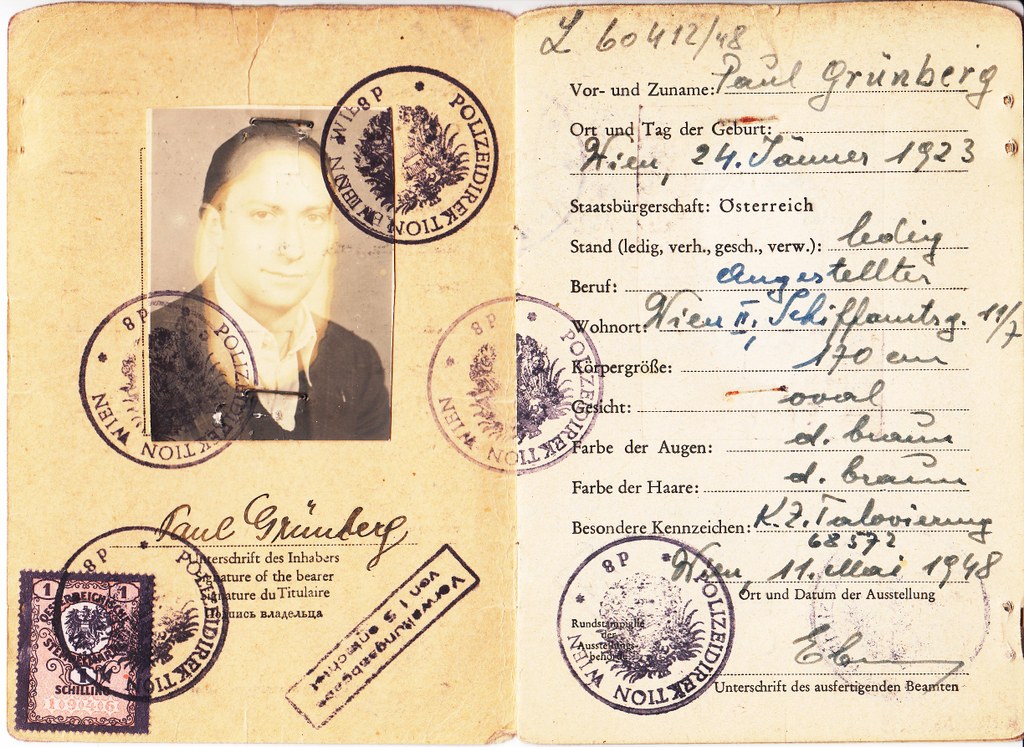 8P * POLIZEIDIREKTION WIEN
8P * POLIZEIDIREKTION WIEN
8P * POLIZEIDIREKTION WIEN
Paul Grünberg
Unterschrift des Inhabers
Signature of the bearer
Signature du Titulaire
Подпись владельца
8P * POLIZEIDIREKTION WIEN
1 1
1
SCHILLING
Verwaltungsabgabe
von 1 S entrichtet
L 60412/48
Vor- und Zuname: Paul Grünberg
Ort und Tag der Geburt:
Wien, 24. Jänner 1923
Staatsbürgerschaft: Österreich
Stand (ledig, verh., gesch., verw.): ledig
Beruf: Angestellter
Wohnort: Wien II, Schiffamtsg. 11/7
Körpergröße: 170 cm
Gesicht: oval
Farbe der Augen: d. braun
Farbe der Haare: d. braun
Besondere Kennzeichen: K.Z. Tatovierung
68572
Wien, 11. Mai 1948
Ort und Datum der Ausstellung
8P * POLIZEIDIREKTION WIEN
Rundstampiglie
der
Ausstellungs-
behörde
Unterschrift des ausfertigenden Beamten